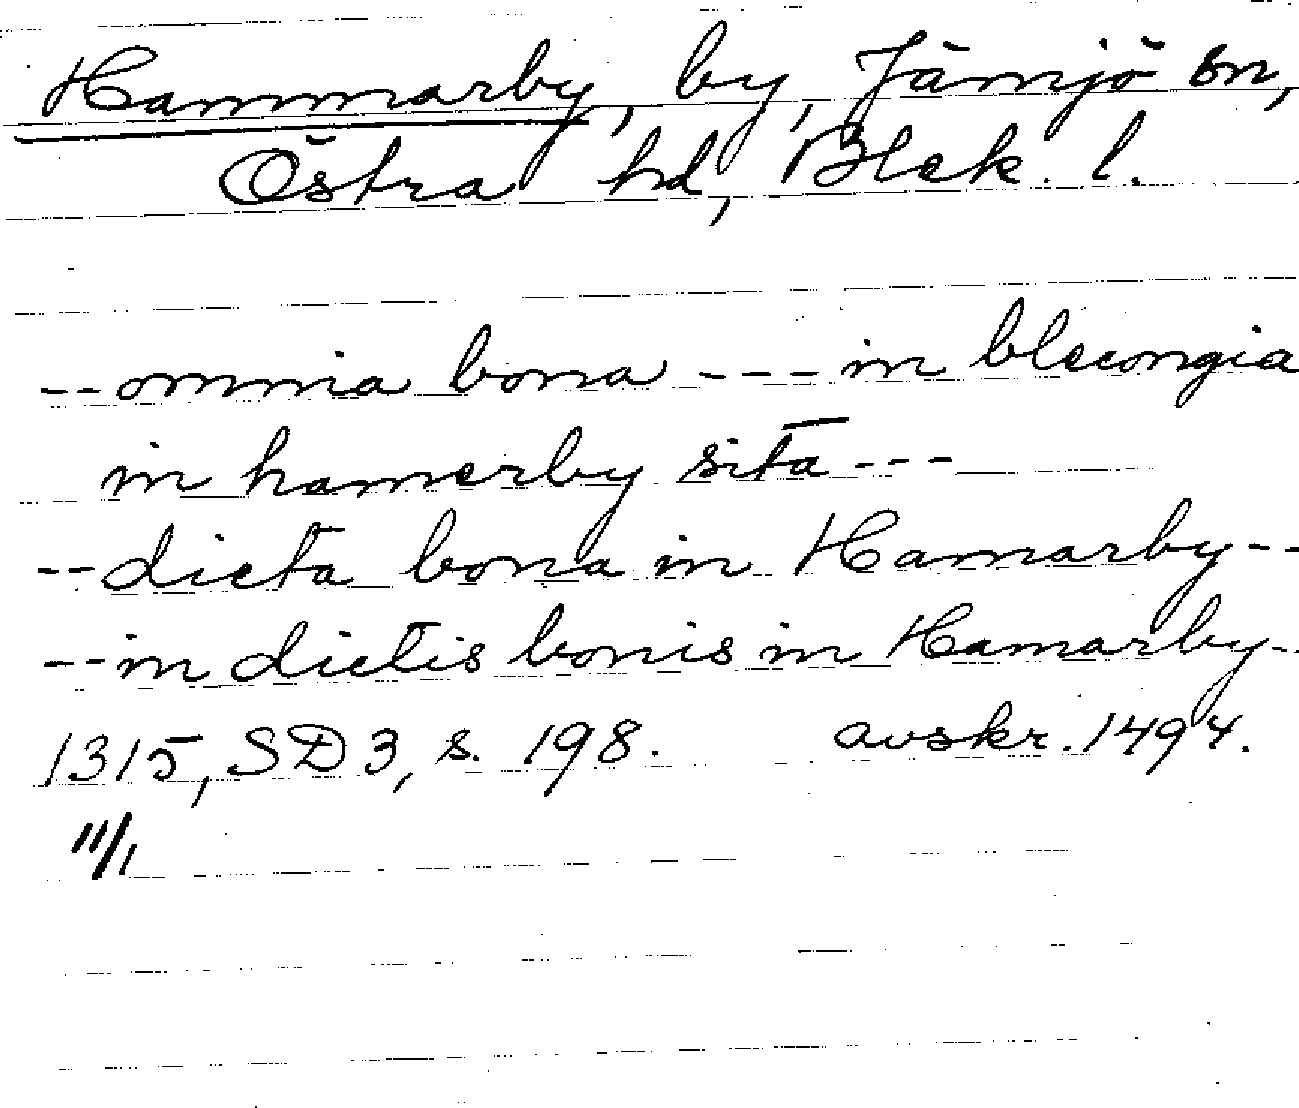 Hammarby, by, Jämjö sn,
Östra hd, Blek. l.
-- omnia bona --- in blecongia
in hamerby sita ---
-- dicta bona in Hamarby --
-- in dictis bonis in Hamarby --
1315, SD 3, s. 198. avskr. 1494.
11/1